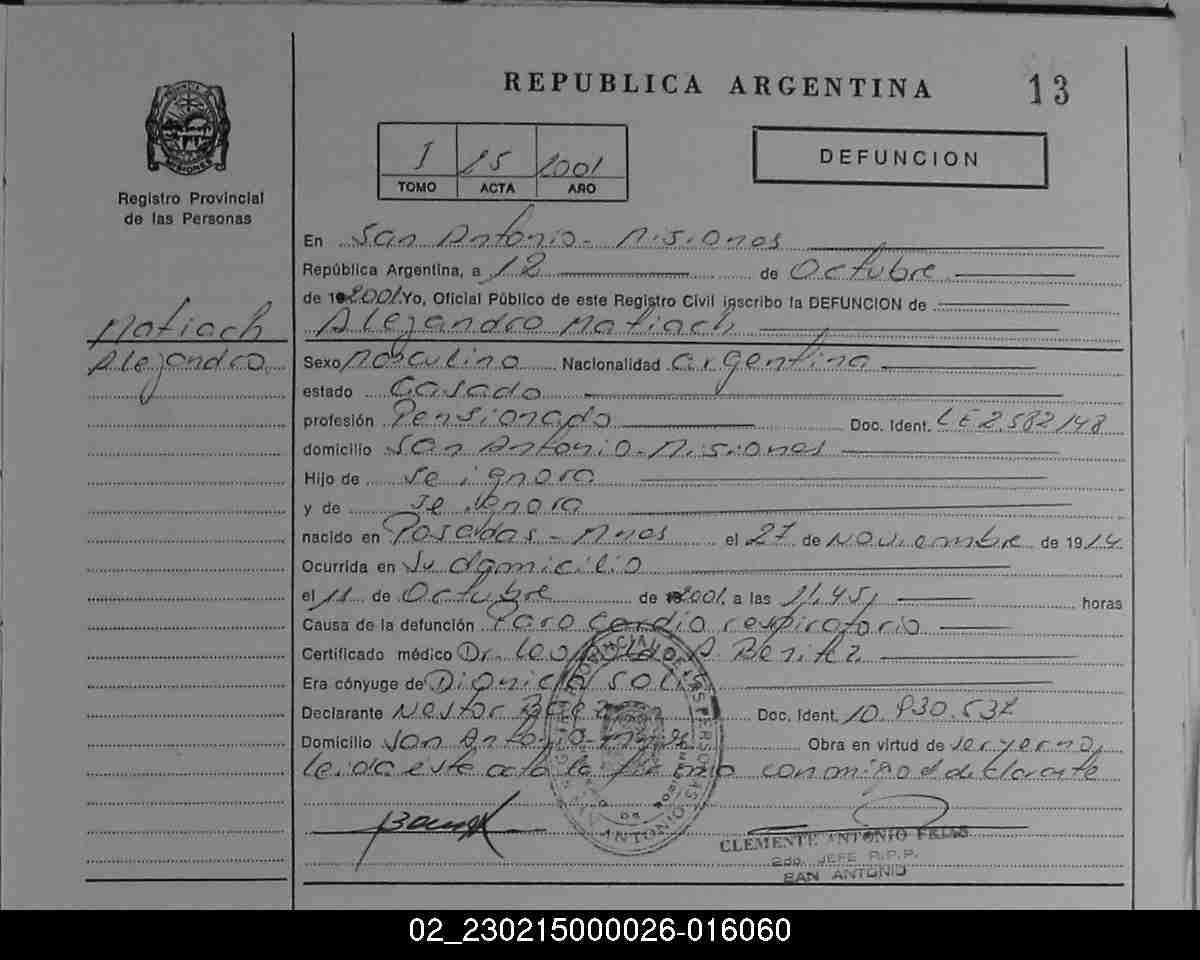 REPUBLICA ARGENTINA
13
I 25 2001
TOMO ACTA AÑO
DEFUNCION
Registro Provincial
de las Personas
Matiach
Alejandro
En San Antonio - Misiones
República Argentina, a 12 de Octubre
de 2001. Yo, Oficial Público de este Registro Civil inscribo la DEFUNCION de
Alejandro Matiach
Sexo Masculino Nacionalidad argentina
estado Casado
profesión Pensionado Doc. Ident. LE 2.582.148
domicilio San Antonio - Misiones
Hijo de se ignora
y de se ignora
nacido en Posadas - Mnes el 27 de Noviembre de 1914
Ocurrida en su domicilio
el 11 de Octubre de 2001, a las 11,45, horas
Causa de la defunción Paro Cardio respiratorio
Certificado médico Dr. A Benitez
Era cónyuge de Dionicia
Declarante Nestor Doc. Ident. 10.930.537
Domicilio San Antonio Obra en virtud de ser yerno,
leida este acta la firma conmigo el declarante
CLEMENTE ANTONIO FRIAS
2do. JEFE R.P.P.
SAN ANTONIO
02_230215000026-016060